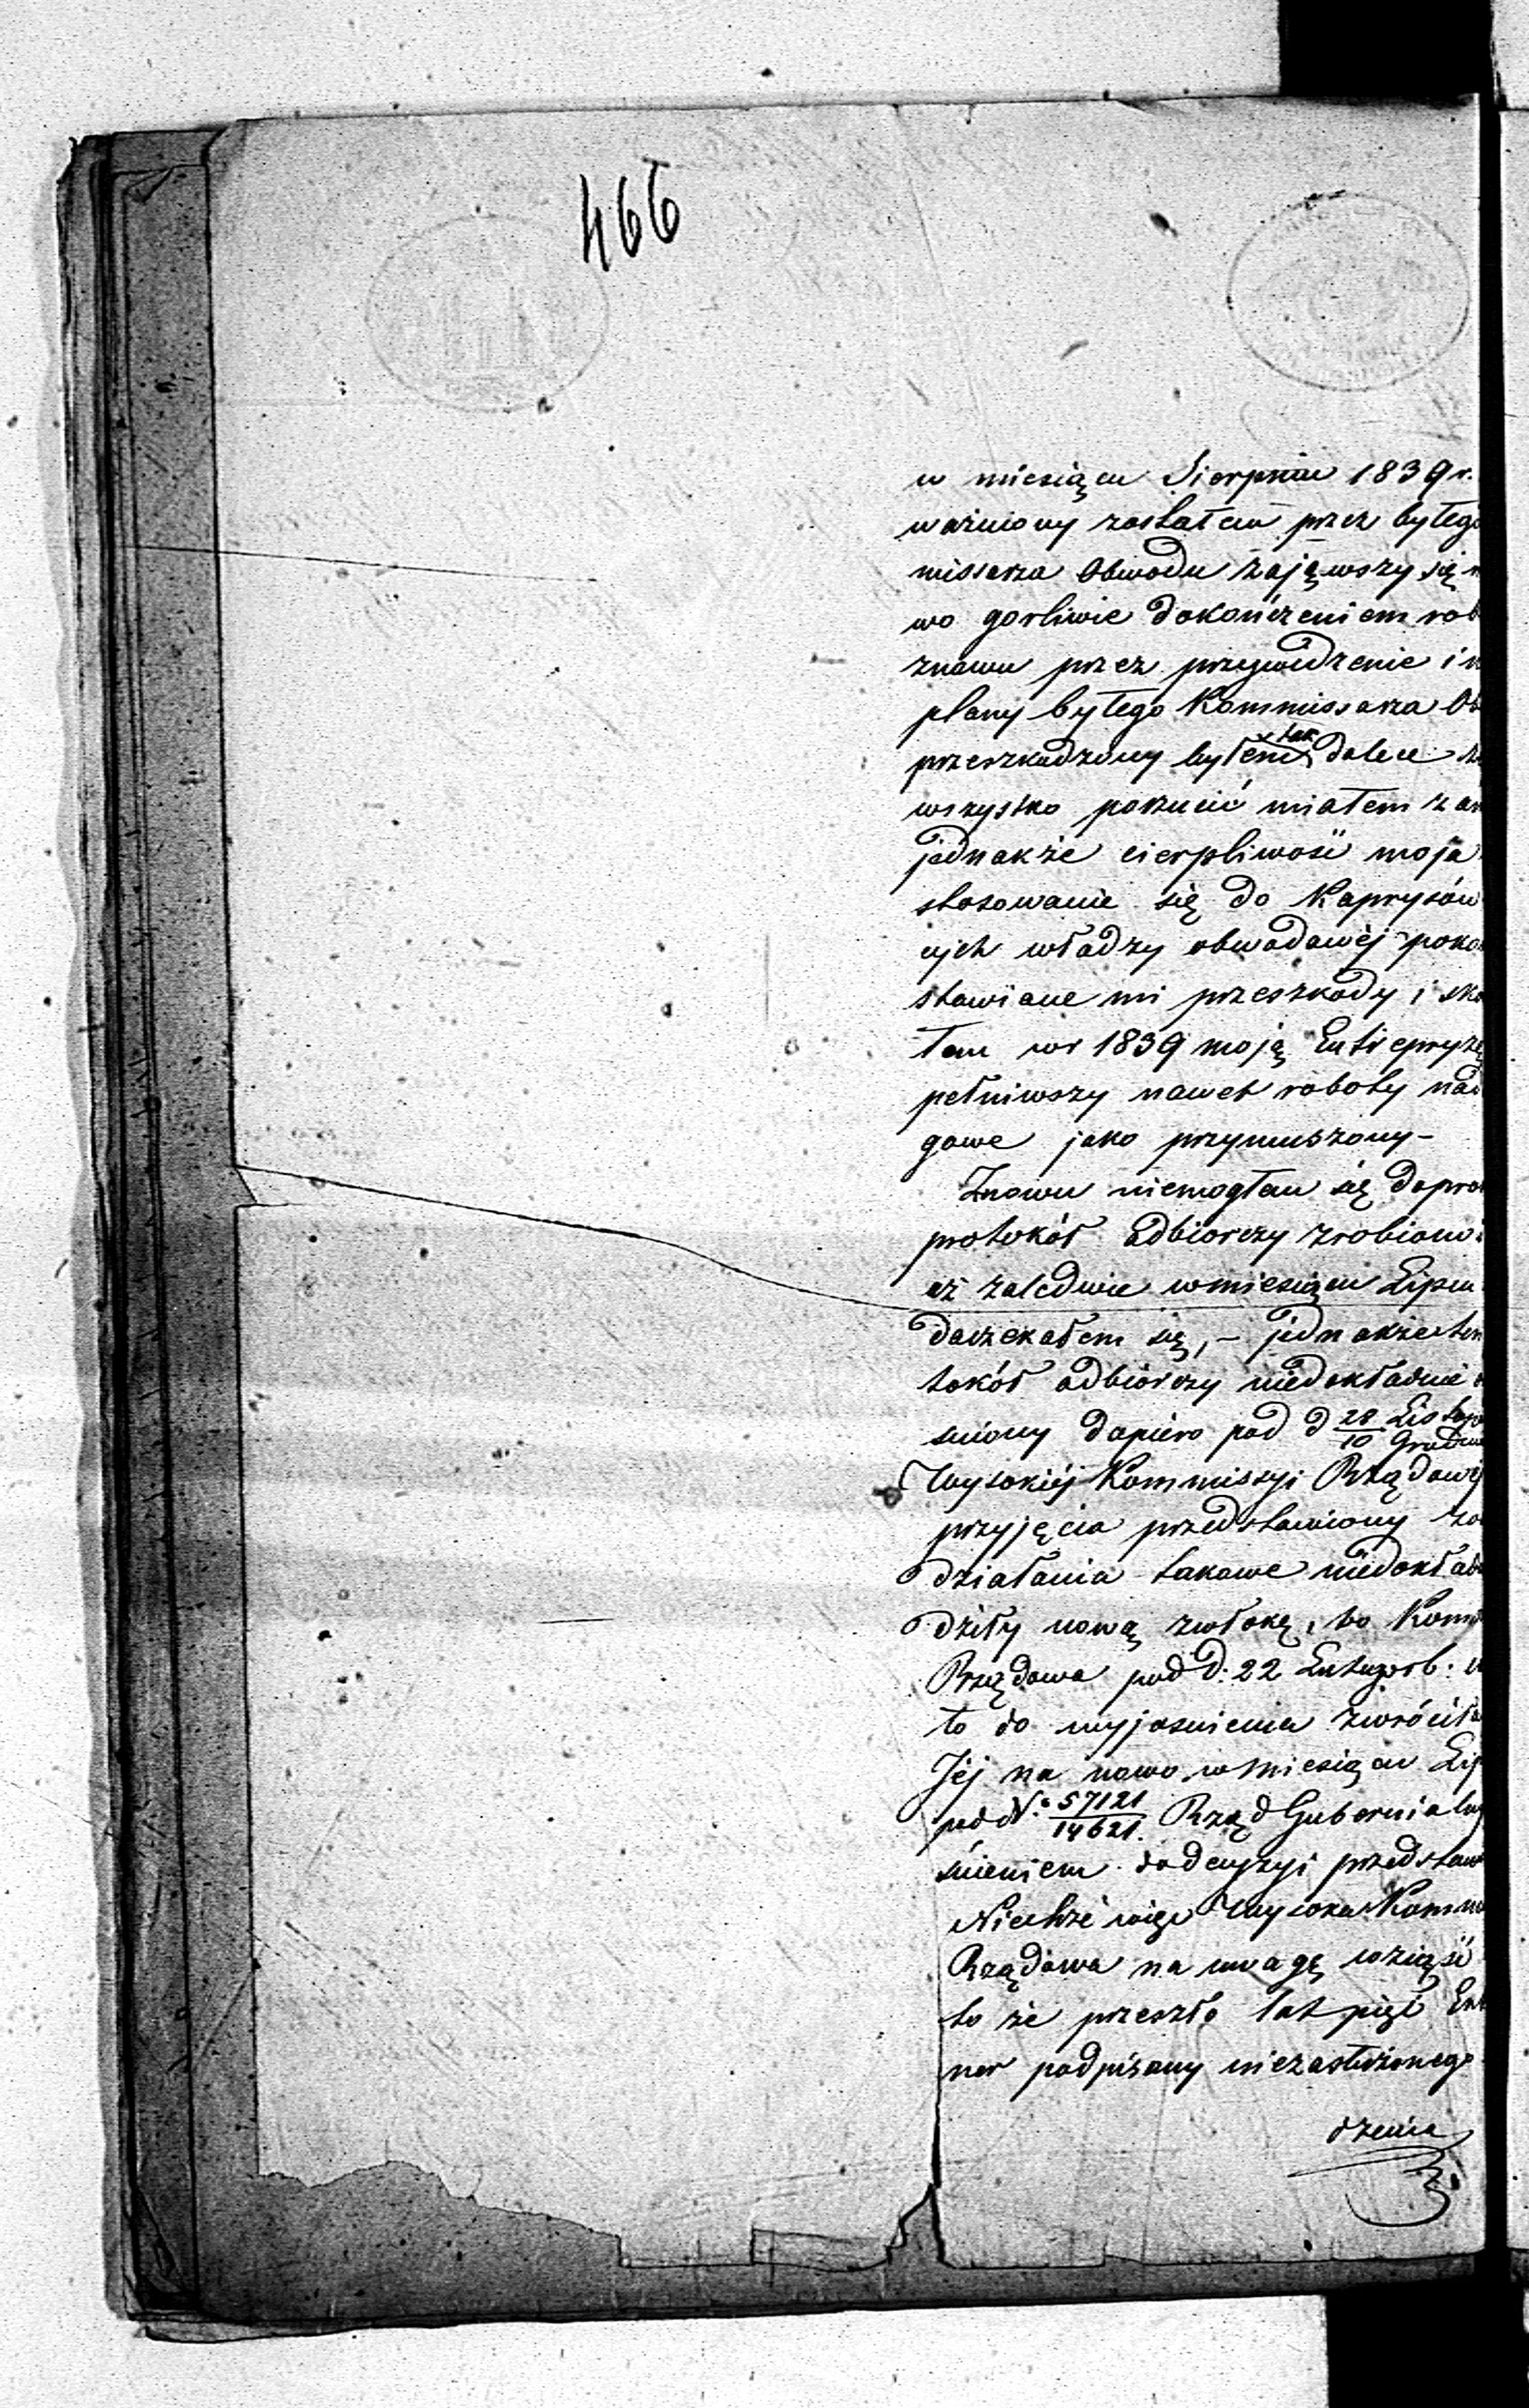 466
w miesiącu Sierpniu 1839 r.
ważniony zostałem przez byłego
missarza Obwodu zająwszy się n
wo gorliwie dokończeniem rob
znowu przez przywidzenie i n
plany byłego Kommissarza Ob
przeszkodzony byłem tak dalece
wszystko porzucić miałem zam
jednakże cierpliwość moja
stosowanie się do Kaprysów
cych władzy obwodowéj poko
stawiane mi przeszkody i sko
łem w r 1839 moją Entrepryzę
pełniwszy nawet roboty nad
gowe jako przymuszony -
Znowu niemogłem się dopro
protokół odbiorczy zrobiono
aż zaledwie w miesiącu Lipcu
doczekałem się, - jednakże ten
tokół odbiorczy niedokładnie
sniony dopiero pod d 28 Listop
10 Grudnia
Wysokiéj Kommissyi Rządowéj
przyjęcia przedstawiony zo
działania takowe niedokład
dziły nową zwłokę, bo Komm
Rządowa pod D: 22 Lutego r b:
to do wyjasnienia zwróciła
Jéj na nowo w miesiącu Lip
pod N° 57121/14621. Rząd Gubernialny
śnieniem do decyzyi przedstaw
Niechże więc Wysoka Komm
Rządowa na uwagę wziąść
to że przeszło lat pięć Ent
ner podpisany niezasłużonego
dzenia